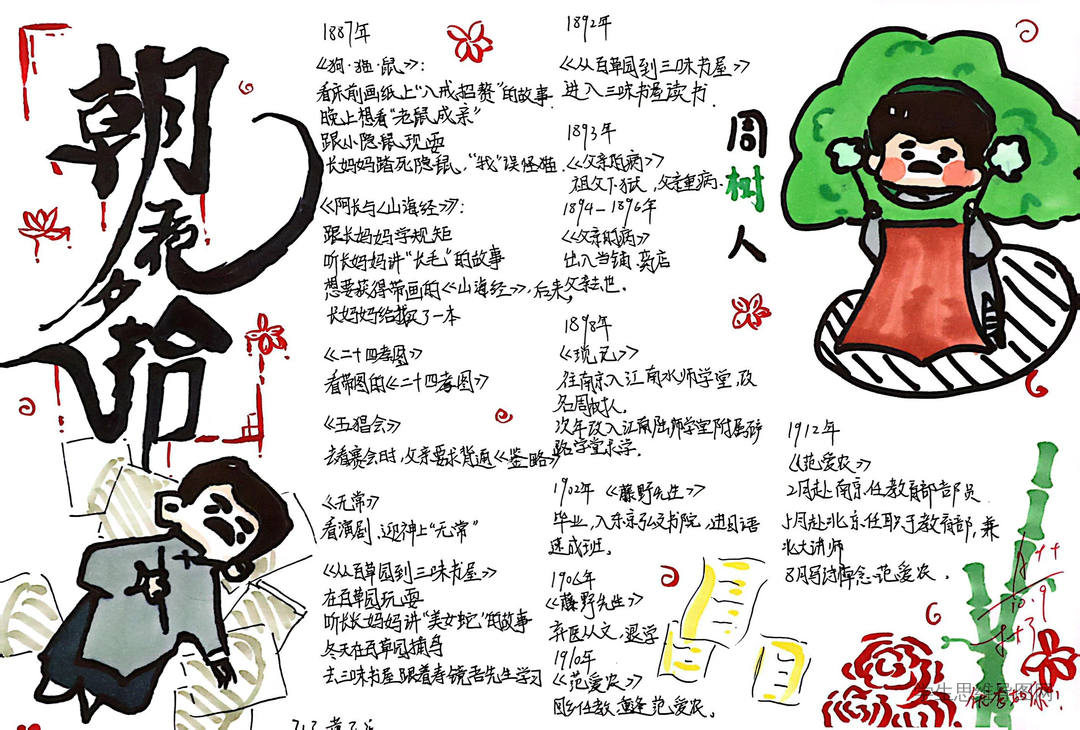 朝花夕拾
1887年
《狗·猫·鼠》：
看床前画纸上"八戒招赘"的故事
晚上想看"老鼠成亲"
跟小隐鼠玩耍
长妈妈踏死隐鼠，"我"误怪猫.
《阿长与《山海经》》：
跟长妈妈学规矩
听长妈妈讲"长毛"的故事
想要获得带画的《山海经》，后来，
长妈妈给我买了一本
《二十四孝图》
看带图的《二十四孝图》
《五猖会》
去看赛会时，父亲要求背诵《鉴略》
《无常》
看演剧，迎神上"无常"
《从百草园到三味书屋》
在百草园玩耍
听长妈妈讲"美女蛇"的故事
冬天在百草园捕鸟
去三味书屋跟着寿镜吾先生学习
1892年
《从百草园到三味书屋》
进入三味书屋读书.
1893年
《父亲的病》
祖父下狱，父亲重病.
1894-1896年
《父亲的病》
出入当铺 药店
父亲去世.
1898年
《琐记》
往南京入江南水师学堂，改
名周树人.
次年改入江南陆师学堂附属矿
路学堂求学.
1902年《藤野先生》
毕业，入东京弘文书院，进日语
速成班.
1906年
《藤野先生》
弃医从文，退学
1910年
《范爱农》
回乡任教，重逢范爱农.
周树人
1912年
《范爱农》
2月赴南京任教育部部员
5月赴北京任职于教育部，兼
北大讲师
8月写诗悼念范爱农.
A++
10.9